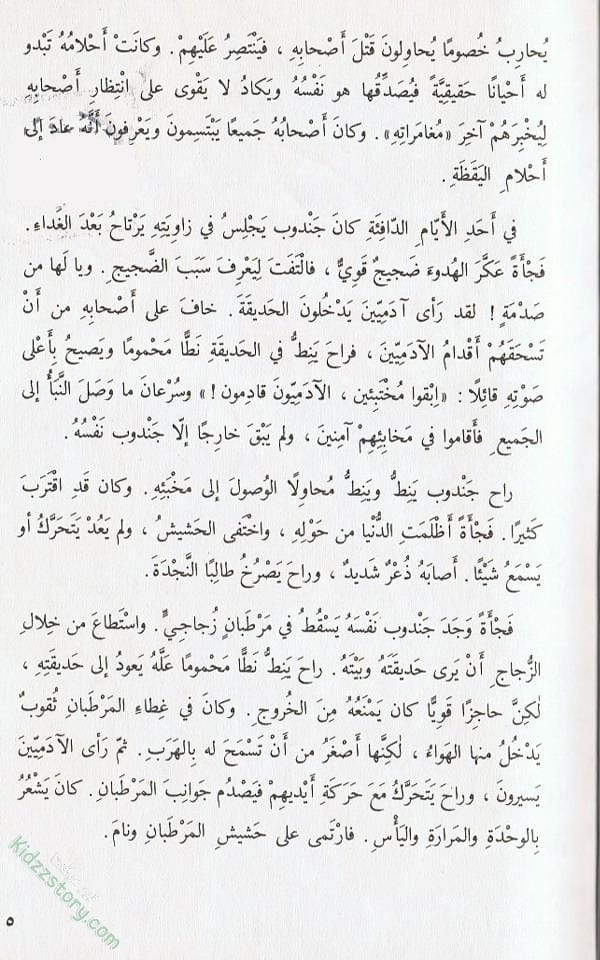 يُحارِبُ خُصومًا يُحاوِلونَ قَتْلَ أَصْحابِهِ ، فَيَنْتَصِرُ عَلَيْهِمْ . وكانَتْ أَحْلامُهُ تَبْدو
له أَحْيانًا حَقيقِيَّةً فَيُصَدِّقُها هو نَفْسُهُ ويَكادُ لا يَقْوى على انْتِظارِ أَصْحابِهِ
لِيُخْبِرَهُمْ آخِرَ «مُغامَراتِهِ» . وكانَ أَصْحابُهُ جَميعًا يَبْتَسِمونَ ويَعْرِفونَ أَنَّهُ عادَ إلى
أَحْلامِ اليَقَظَةِ .
في أَحَدِ الأَيّامِ الدّافِئَةِ كانَ جَنْدوب يَجْلِسُ في زاوِيَتِهِ يَرْتاحُ بَعْدَ الغَداءِ .
فَجْأَةً عَكَّرَ الهُدوءَ ضَجيجٌ قَوِيٌّ ، فالْتَفَتَ لِيَعْرِفَ سَبَبَ الضَّجيجِ . ويا لَها من
صَدْمَةٍ ! لقد رَأى آدَمِيّينَ يَدْخُلونَ الحَديقَةَ . خافَ على أَصْحابِهِ من أَنْ
تَسْحَقَهُمْ أَقْدامُ الآدَمِيّينَ ، فراحَ يَنِطُّ في الحَديقَةِ نَطًّا مَحْمومًا ويَصيحُ بِأَعْلى
صَوْتِهِ قائِلًا : «اِبْقوا مُخْتَبِئين ، الآدَمِيّونَ قادِمون !» وسُرْعانَ ما وَصَلَ النَّبَأُ إلى
الجَميعِ فَأَقاموا في مَخابِئِهِمْ آمِنينَ ، ولم يَبْقَ خارِجًا إلّا جَنْدوب نَفْسُهُ .
راح جَنْدوب يَنِطُّ ويَنِطُّ مُحاوِلًا الوُصولَ إلى مَخْبَئِهِ . وكان قَدِ اقْتَرَبَ
كَثيرًا . فَجْأَةً أَظْلَمَتِ الدُّنْيا من حَوْلِهِ ، واخْتَفى الحَشيشُ ، ولم يَعُدْ يَتَحَرَّكُ أو
يَسْمَعُ شَيْئًا . أَصابَهُ ذُعْرٌ شَديدٌ ، وراحَ يَصْرُخُ طالِبًا النَّجْدَةَ .
فَجْأَةً وَجَدَ جَنْدوب نَفْسَهُ يَسْقُطُ في مَرْطَبانٍ زُجاجِيٍّ . واسْتَطاعَ من خِلالِ
الزُّجاجِ أَنْ يَرى حَديقَتَهُ وبَيْتَهُ . راحَ يَنِطُّ نَطًّا مَحْمومًا عَلَّهُ يَعودُ إلى حَديقَتِهِ ،
لٰكِنَّ حاجِزًا قَوِيًّا كان يَمْنَعُهُ مِنَ الخُروجِ . وكانَ في غِطاءِ المَرْطَبانِ ثُقوبٌ
يَدْخُلُ منها الهَواءُ ، لٰكِنَّها أَصْغَرُ من أَنْ تَسْمَحَ له بِالهَرَبِ . ثمّ رَأى الآدَمِيّينَ
يَسيرونَ ، وراحَ يَتَحَرَّكُ مَعَ حَرَكَةِ أَيْديهِمْ فَيَصْدُم جَوانِبَ المَرْطَبانِ . كانَ يَشْعُرُ
بِالوِحْدَةِ والمَرارَةِ واليَأْسِ . فارْتَمى على حَشيشِ المَرْطَبانِ ونامَ .
Kidzzstory.com
٥